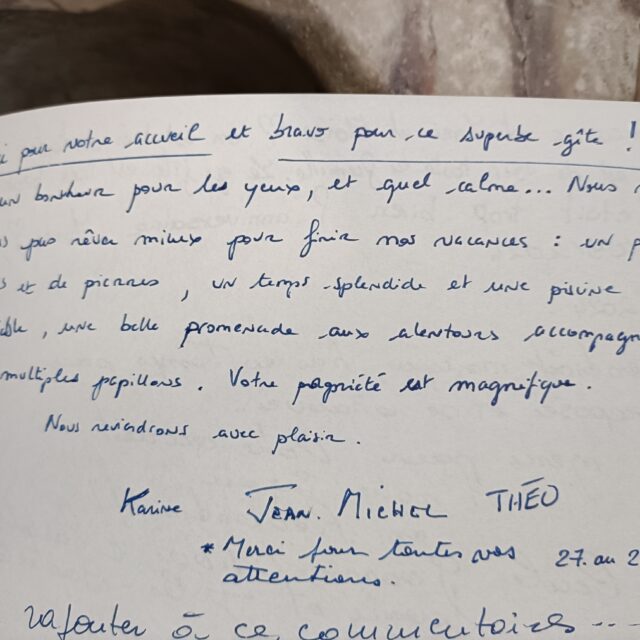 pour votre accueil et bravo pour ce superbe gîte !
un bonheur pour les yeux, et quel calme... Nous
pas rêver mieux pour finir nos vacances : un
et de pierres, un temps splendide et une piscine
une belle promenade aux alentours accompagn
multiples papillons. Votre propriété est magnifique.
Nous reviendrons avec plaisir.
Karine JEAN. MICHEL THÉO
* Merci pour toutes vos 27. au 2
attentions.
rajouter à ce commentaires ...